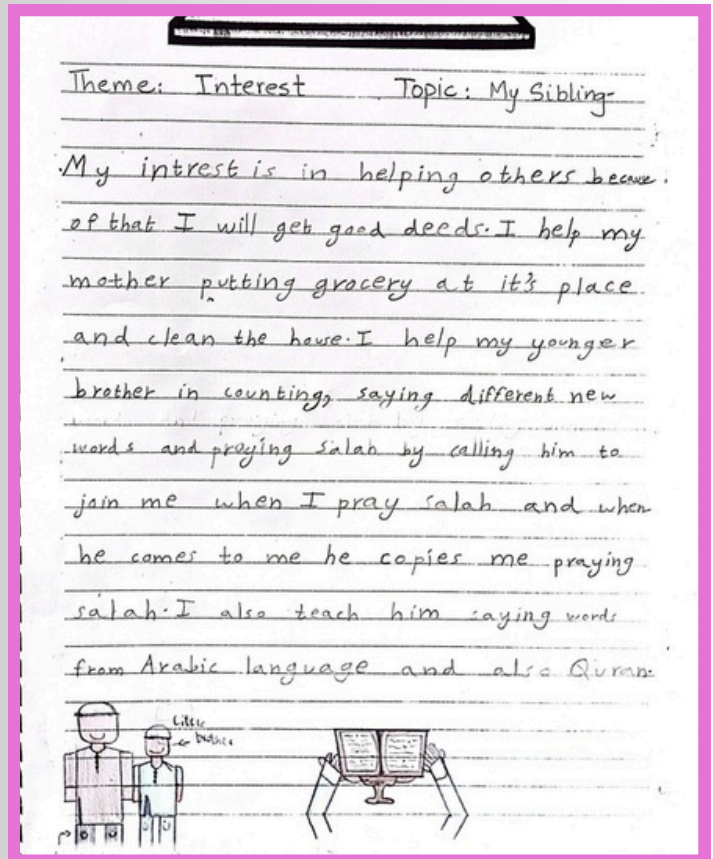 Theme: Interest Topic: My Sibling
My intrest is in helping others because
of that I will get good deeds. I help my
mother putting grocery at it's place
and clean the house. I help my younger
brother in counting, saying different new
words and praying salah by calling him to
join me when I pray salah and when
he comes to me he copies me praying
salah. I also teach him saying words
from Arabic language and also Quran.
Little
brother